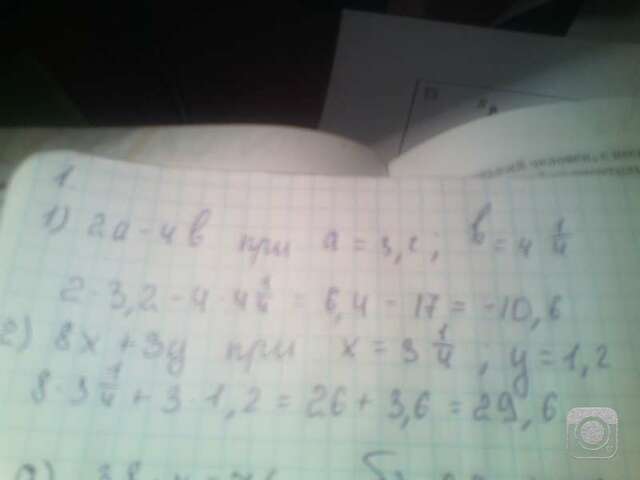 1.
1) 2a - 4b при a = 3,2; b = 4 1/4
2 · 3,2 - 4 · 4 1/4 = 6,4 - 17 = -10,6
2) 8x + 3y при x = 3 1/4; y = 1,2
8 · 3 1/4 + 3 · 1,2 = 26 + 3,6 = 29,6